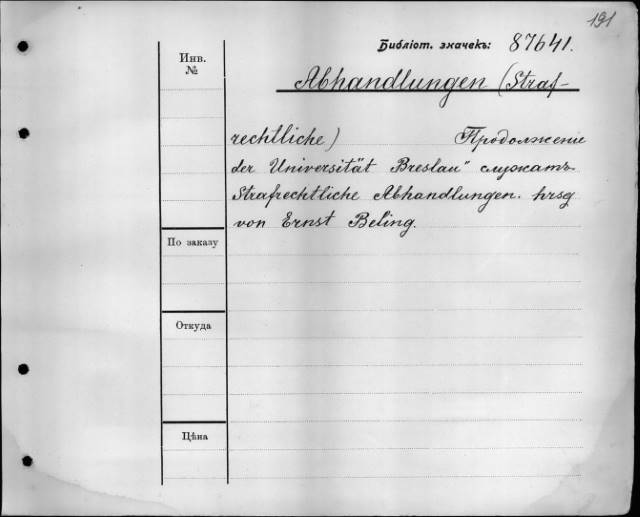 191
Библіот. значекъ: 87641.
Инв.
№
Abhandlungen (Straf-
rechtliche) Продолженіе
der Universität Breslau" служатъ
Strafrechtliche Abhandlungen. hrsg
von Ernst Beling.
По заказу
Откуда
Цѣна